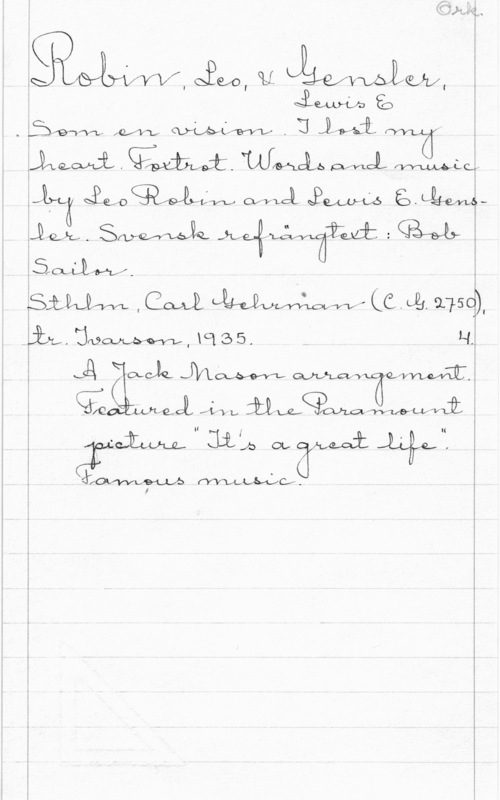 Ork.
Robin, Leo, & Gensler,
Lewis E
Som en vision. I lost my
heart. Foxtrot. Words and music
by Leo Robin and Lewis E. Gens-
ler. Svensk refrängtext: Bob
Sailor.
Sthlm, Carl Gehrman (C. G. 2750),
tr. Ivarson, 1935. 4.
A Jack Mason arrangement.
Featured in the Paramount
picture "It's a great life".
Famous music.